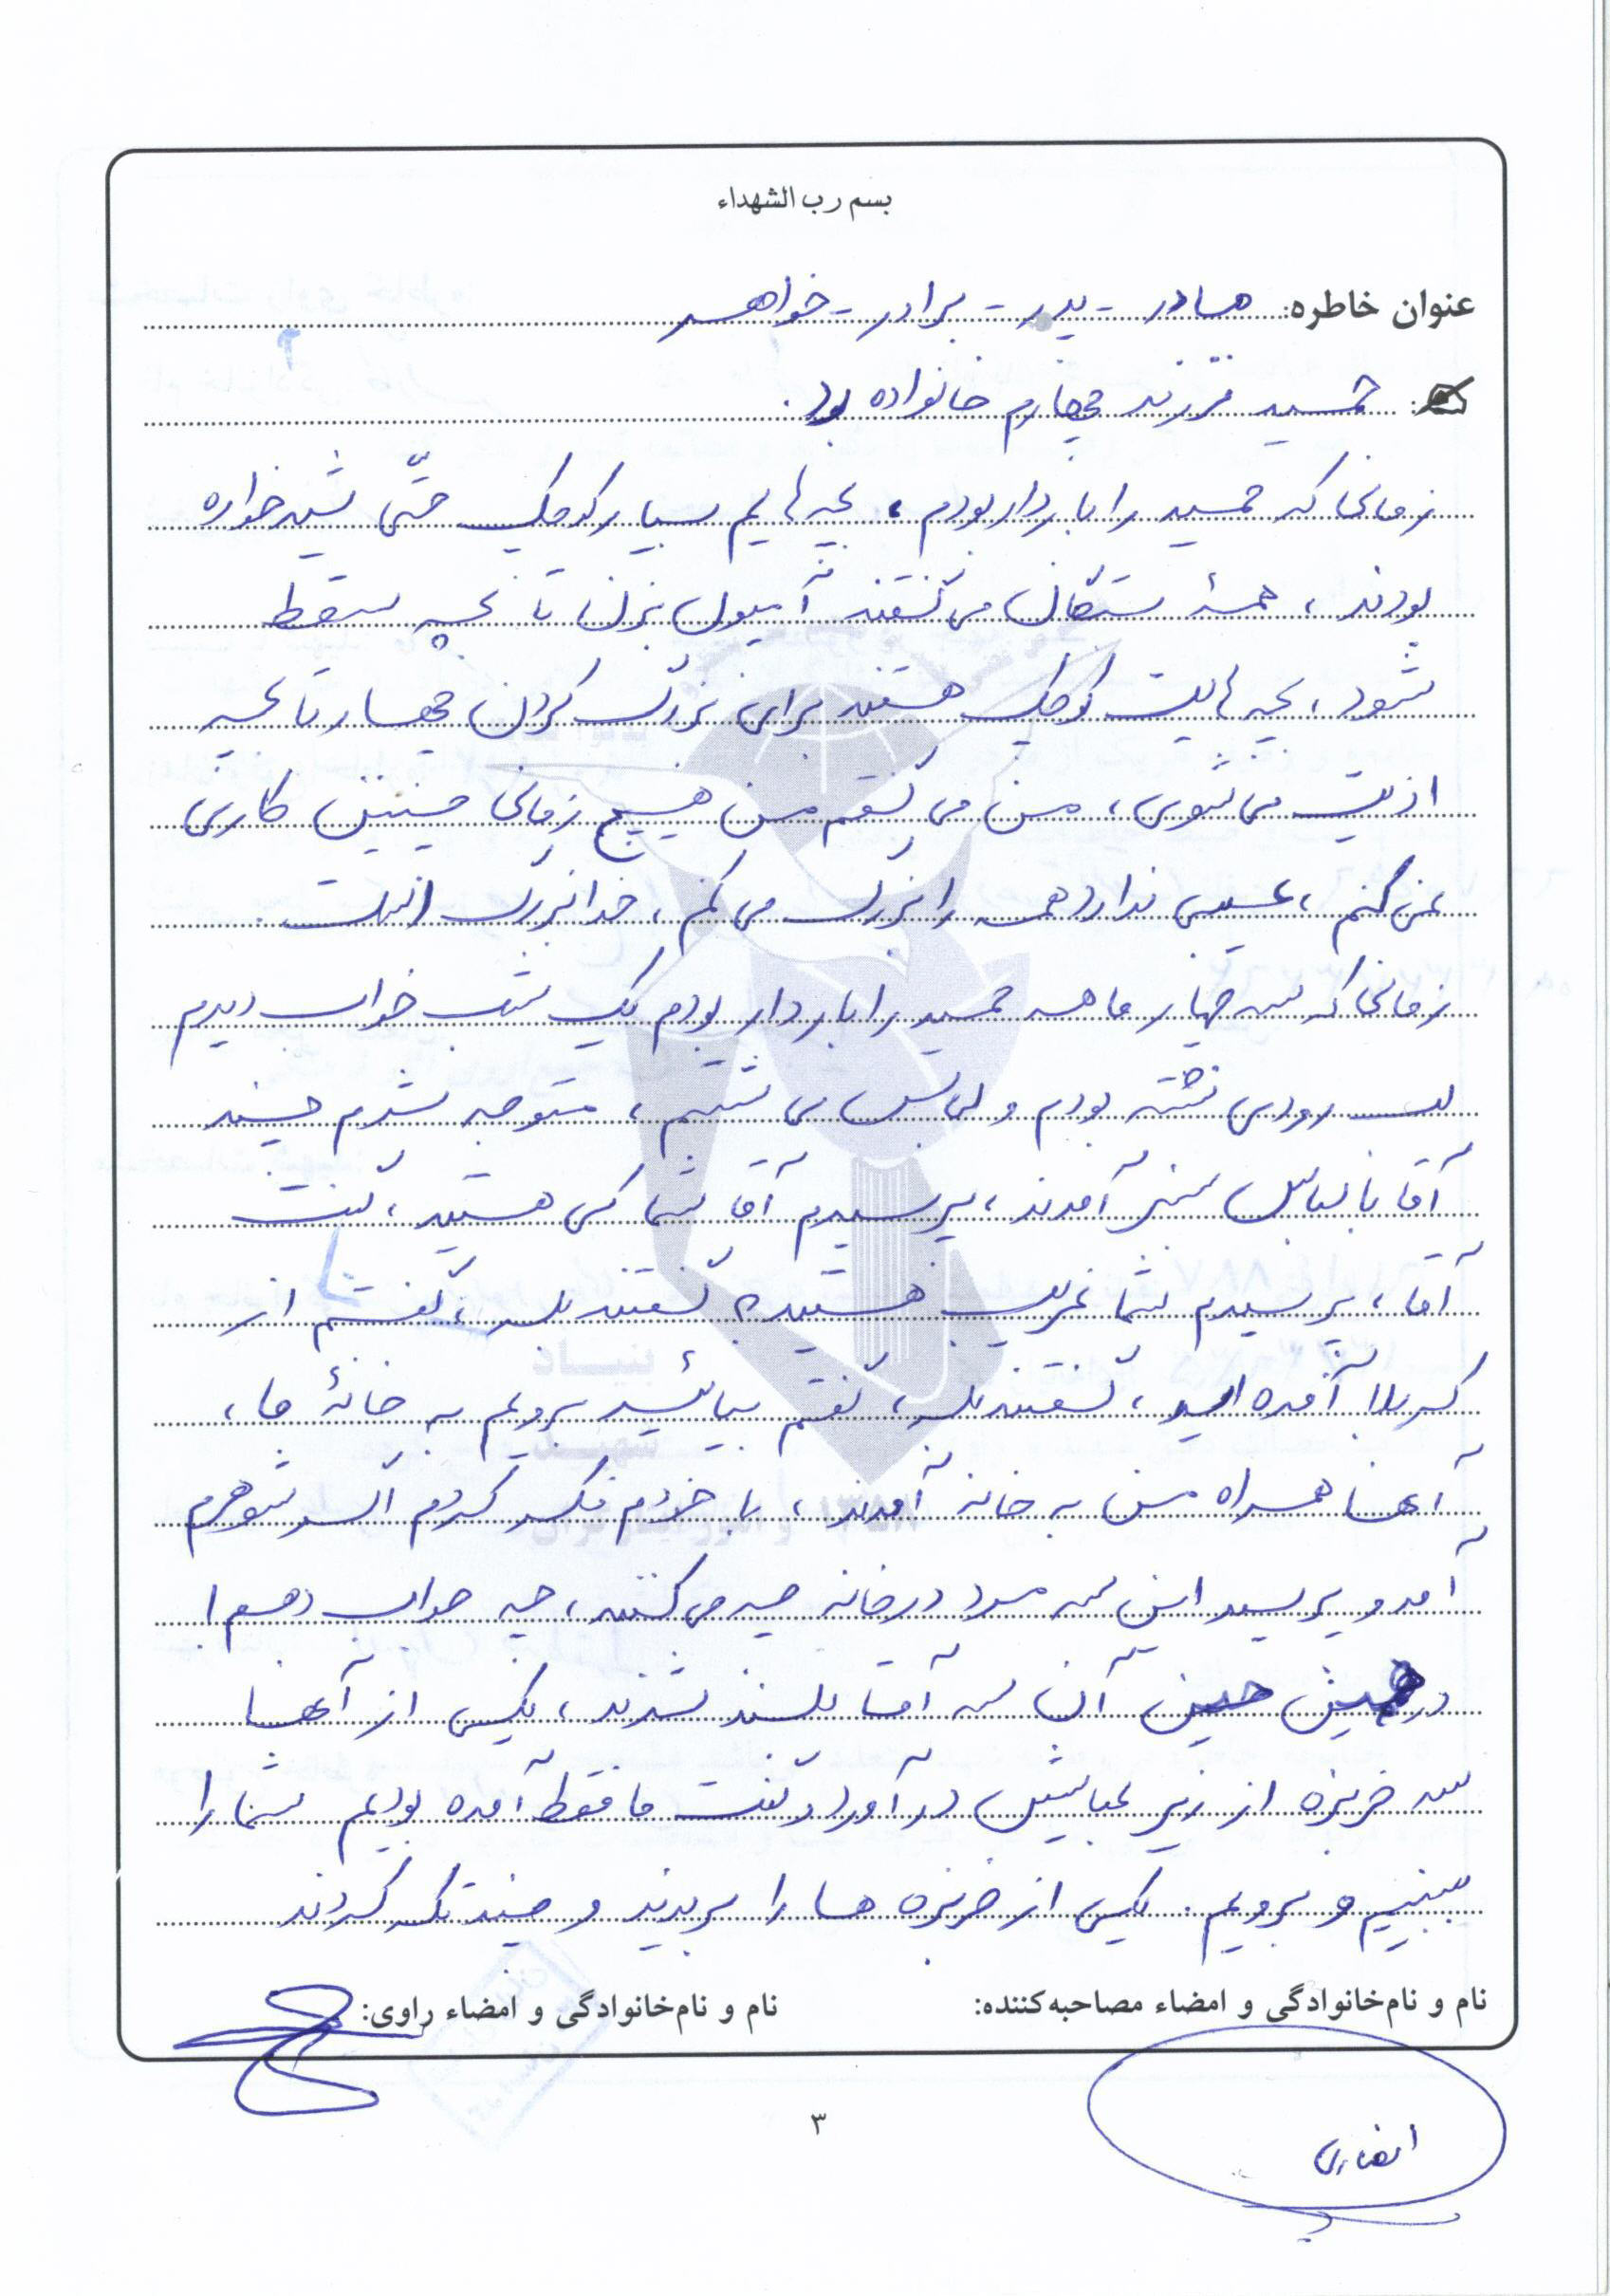 بسم رب الشهداء
عنوان خاطره: مادر - پدر - برادر - خواهر
حمید فرزند چهارم خانواده بود.
زمانی که حمید را باردار بودم، بچه هایم بسیار کوچک حتّی شیرخواره
بودند، همۀ می گفتند آمپول بزن تا بچه سقط
شود، بچه هایت کوچک هستند برای بزرگ کردن چهار تا بچه
اذیت می شوی، من می گفتم من هیچ زمانی چنین کاری
نمی کنم، عیبی ندارد همه را بزرگ می کنم، خدا بزرگ است.
زمانی که سه چهار ماهه حمید را باردار بودم یک شب خواب دیدم
لب رودی نشسته بودم و لباس می شستم، متوجه شدم چند
آقا با لباس سبز آمدند، پرسیدم آقا شما کی هستید، گفت
آقا، پرسیدم شما غریب هستید؟ گفتند بله، گفتم از
کربلا آمده اید، گفتند بله، گفتم بیائید برویم به خانۀ ما،
آنها همراه من به خانه آمدند، با خودم فکر کردم اگر شوهرم
آمد و پرسید این سه مرد در خانه چه می کنند، چه جواب دهم!
در همین حین آن سه آقا بلند شدند، یکی از آنها
سه خربزه از زیر عبایش در آورد و گفت ما فقط آمده بودیم شما را
ببینیم و برویم. یکی از خربزه ها را بریدند و چند تکه کردند
نام و نام‌خانوادگی و امضاء مصاحبه‌کننده: نام و نام‌خانوادگی و امضاء راوی:
۳
انصاری
بنیاد
شهید
۱۳۵۸ و امور ایثارگران